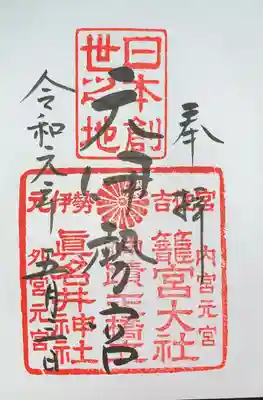 奉拝
日本創
世之地
元伊勢宮
元伊勢 吉佐宮
内宮元宮
籠宮大社
天橋立
眞名井神社
外宮元宮
令和元年五月日